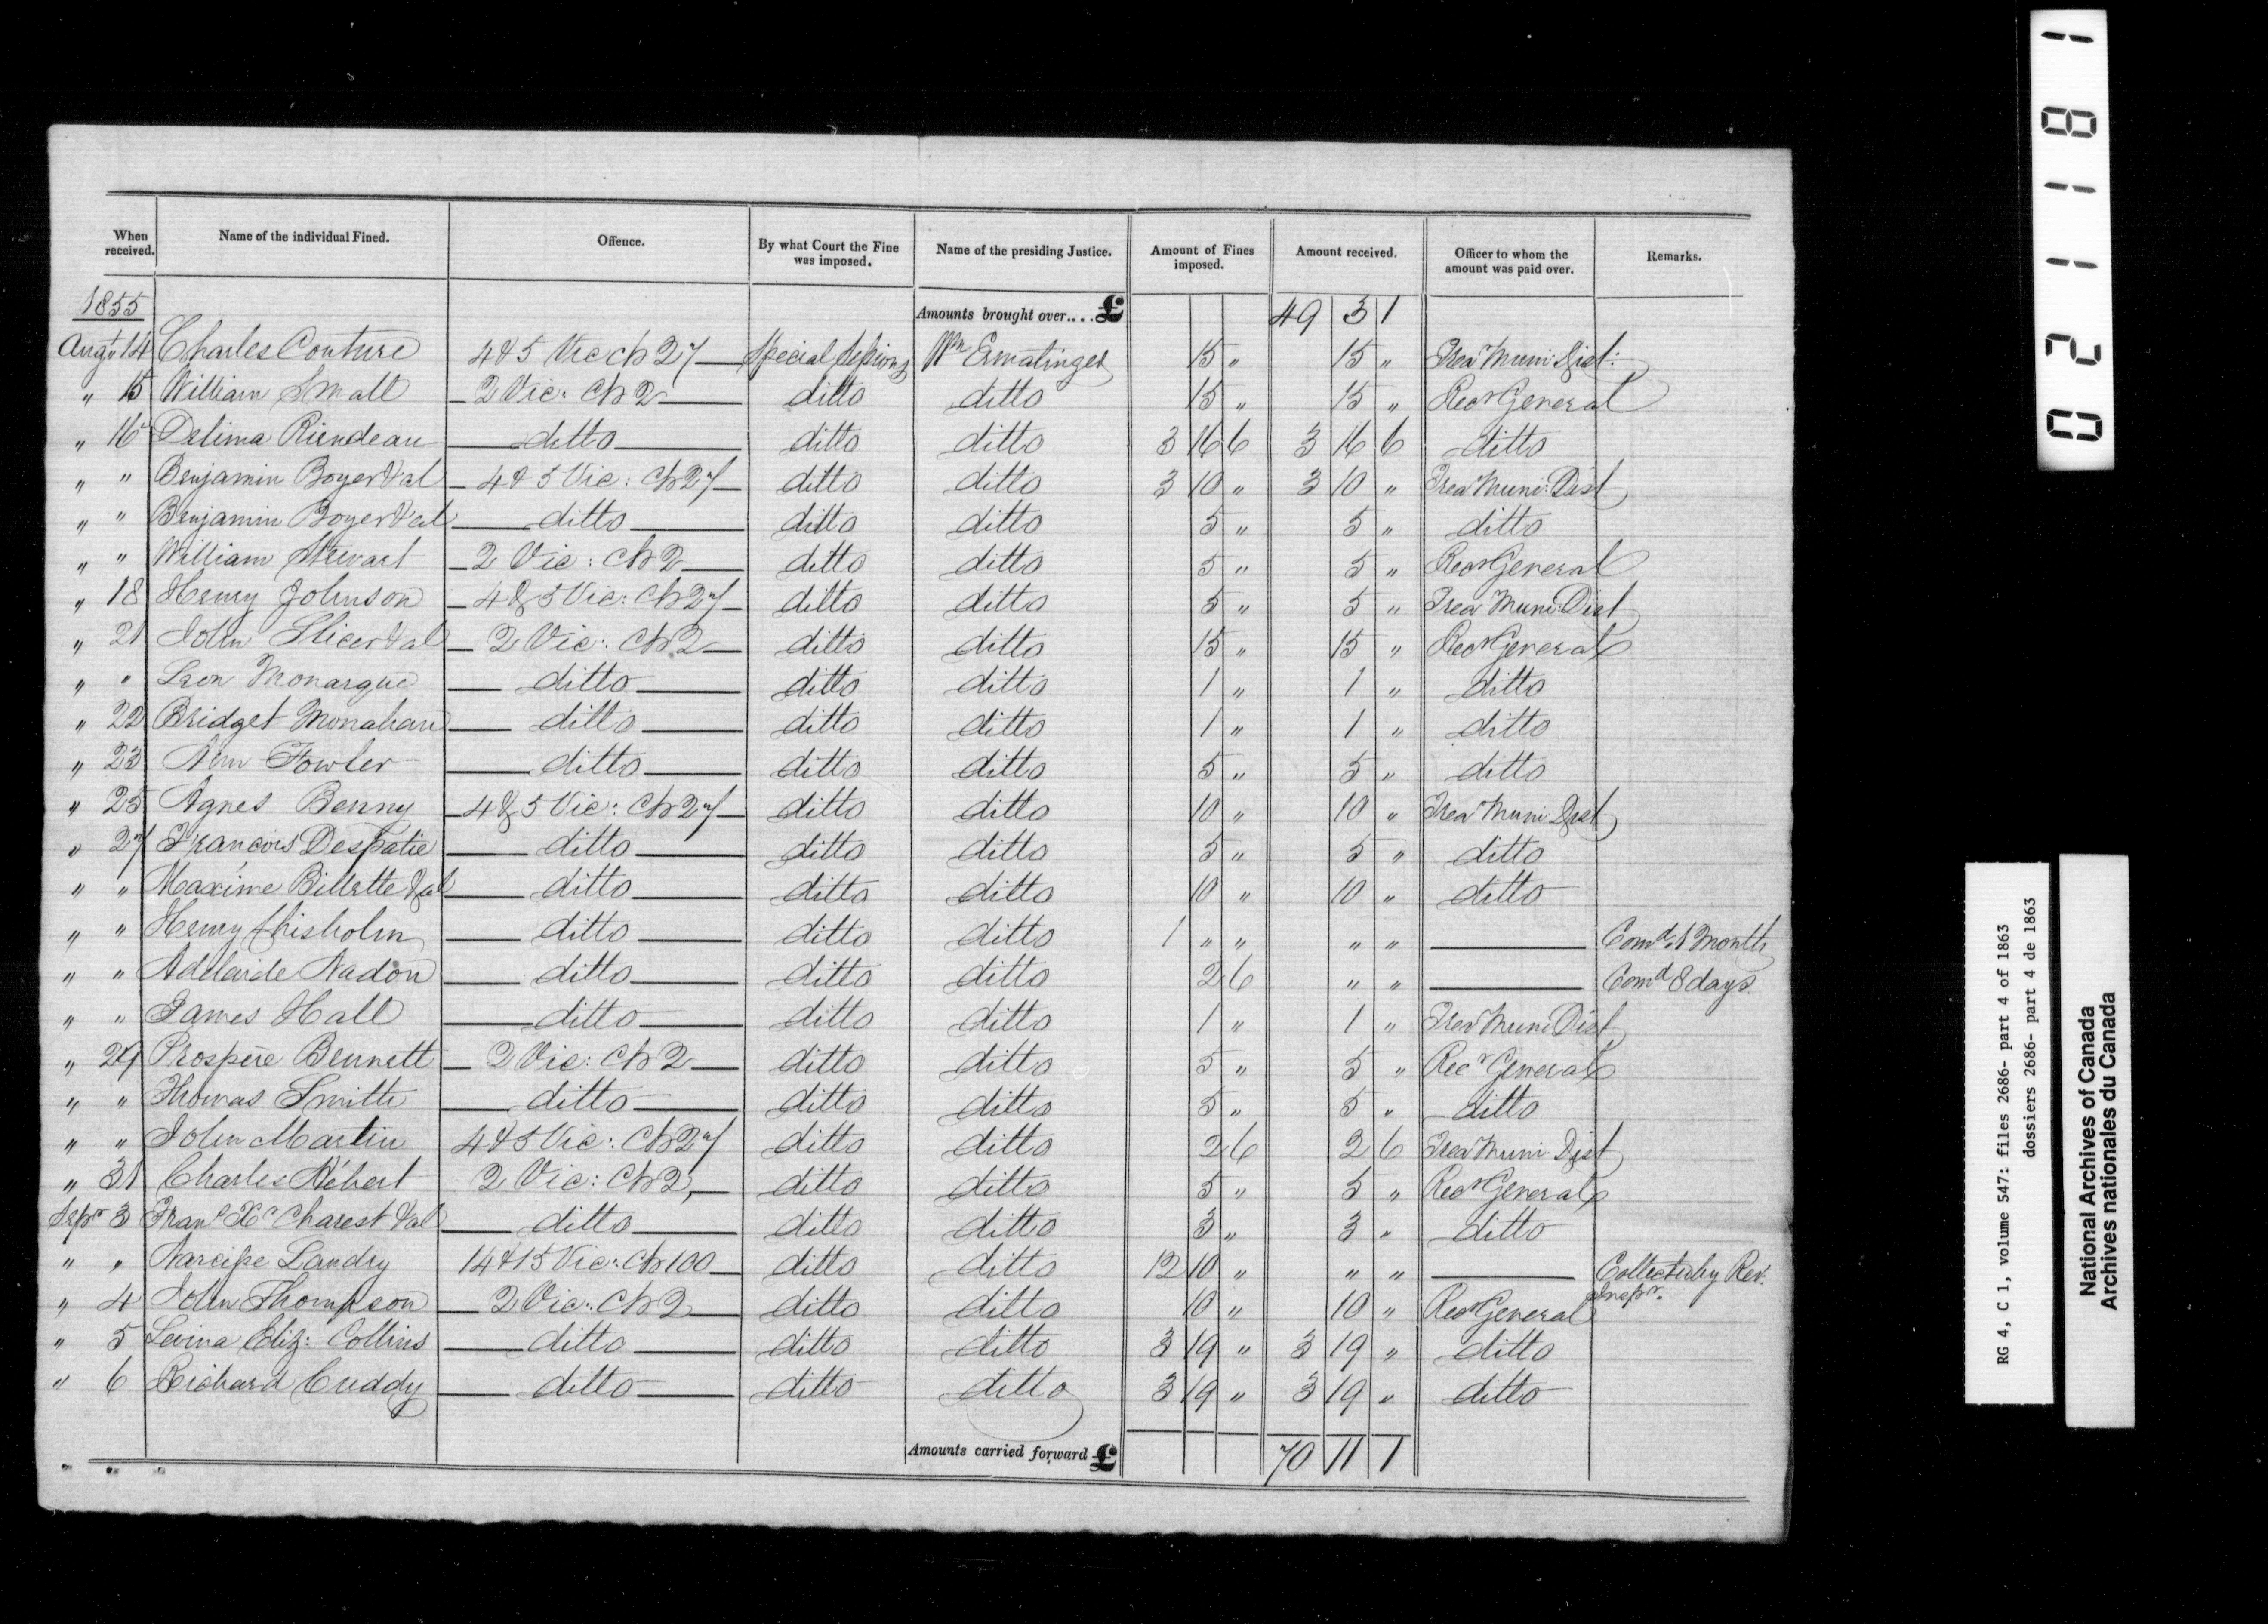 When received. Name of the individual Fined. Offence. By what Court the Fine was imposed. Name of the presiding Justice. Amount of Fines imposed. Amount received. Officer to whom the amount was paid over. Remarks.
1855 Amounts brought over.... £ 49 3 1
Augt 14 Charles Couture 4 & 5 Vic ch 27 Special Sessions Wm Ermatinger 15 „ 15 „ Trear Muni Dist:
„ 15 William Small 2 Vic: Ch 2 ditto ditto 15 „ 15 „ Recr General
„ 16 Delima Riendeau ditto ditto ditto 3 16 6 3 16 6 ditto
„ „ Benjamin Boyer &al 4 & 5 Vic: Ch 27 ditto ditto 3 10 „ 3 10 „ Trear Muni: Dist
„ „ Benjamin Boyer &al ditto ditto ditto 5 „ 5 „ ditto
„ „ William Stewart 2 Vic: Ch 2 ditto ditto 5 „ 5 „ Recr General
„ 18 Henry Johnson 4 & 5 Vic: Ch 27 ditto ditto 5 „ 5 „ Trear Muni: Dist
„ 21 John Slicer &al 2 Vic: Ch 2 ditto ditto 15 „ 15 „ Recr General
„ „ Leon Monarque ditto ditto ditto 1 „ 1 „ ditto
„ 22 Bridget Monahan ditto ditto ditto 1 „ 1 „ ditto
„ 23 Ann Fowler ditto ditto ditto 5 „ 5 „ ditto
„ 25 Agnes Benny 4 & 5 Vic: Ch 27 ditto ditto 10 „ 10 „ Trear Muni Dist
„ 27 Francois Despatie ditto ditto ditto 5 „ 5 „ ditto
„ „ Maxime Billette &al ditto ditto ditto 10 „ 10 „ ditto
„ „ Henry Chisholm ditto ditto ditto 1 „ „ „ „ Comd. 1 Month
„ „ Adelaide Nadon ditto ditto ditto 2 6 „ „ Comd 8 days
„ „ James Hall ditto ditto ditto 1 „ 1 „ Trear Muni Dist
„ 29 Prospère Bennett 2 Vic: Ch 2 ditto ditto 5 „ 5 „ Recr General
„ „ Thomas Smith ditto ditto ditto 5 „ 5 „ ditto
„ „ John Martin 4 & 5 Vic: Ch 27 ditto ditto 2 6 2 6 Trear Muni Dist
„ 31 Charles Hébert 2 Vic: Ch 2 ditto ditto 5 „ 5 „ Recr General
Sepr 3 Frans Xr Charest &al ditto ditto ditto 3 „ 3 „ ditto
„ „ Narcisse Landry 14 & 15 Vic: Ch 100 ditto ditto 12 10 „ „ „ Collected by Rev. Inspr.
„ 4 John Thompson 2 Vic: Ch 2 ditto ditto 10 „ 10 „ Recr General
„ 5 Levina Eliz: Collins ditto ditto ditto 3 19 „ 3 19 „ ditto
„ 6 Richard Cuddy ditto ditto ditto 3 19 „ 3 19 „ ditto
Amounts carried forward £ 70 11 1
021181
RG 4, C 1, volume 547: files 2686- part 4 of 1863
dossiers 2686- part 4 de 1863
National Archives of Canada
Archives nationales du Canada